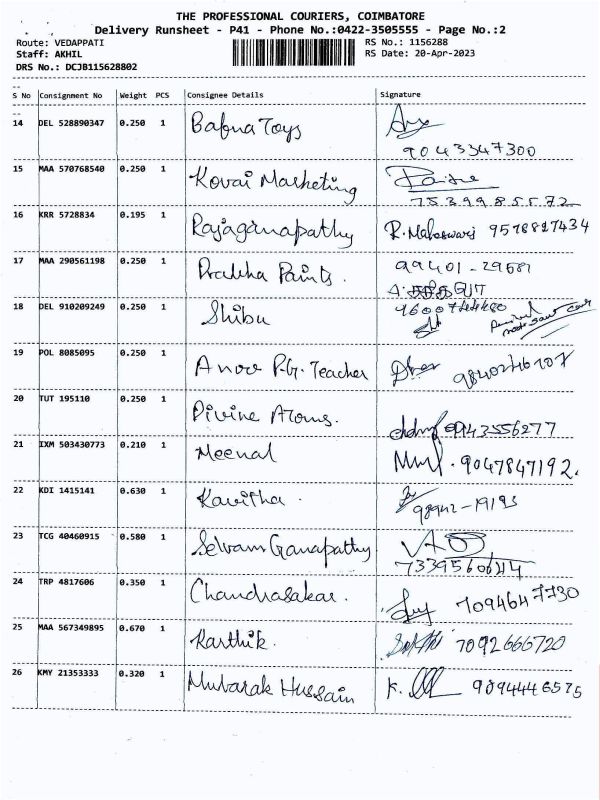 THE PROFESSIONAL COURIERS, COIMBATORE
Delivery Runsheet - P41 - Phone No.:0422-3505555 - Page No.:2
Route: VEDAPPATI RS No.: 1156288
Staff: AKHIL RS Date: 20-Apr-2023
DRS No.: DCJB115628802
S No Consignment No Weight PCS Consignee Details Signature
14 DEL 528890347 0.250 1 Bafna Toys
9043347300
15 MAA 570768540 0.250 1 Kovai Marketing
7539985572
16 KRR 5728834 0.195 1 Rajaganapathy R. Maheswari 9578827434
17 MAA 290561198 0.250 1 Prabha Paints. 99401-29581
18 DEL 910209249 0.250 1 Shibu
19 POL 8085095 0.250 1 Anoo P.G. Teacher
20 TUT 195110 0.250 1 Divine Aroms. 9943556277
21 IXM 503430773 0.210 1 Meenal 9047847192.
22 KDI 1415141 0.630 1 Kavitha. 98942-19193
23 TCG 40460915 0.580 1 Selvam Ganapathy
7339560644
24 TRP 4817606 0.350 1 Chandrasakar. 7094647730
25 MAA 567349895 0.670 1 Karthik. 7092666720
26 KMY 21353333 0.320 1 Mubarak Hussain K. 9094446575